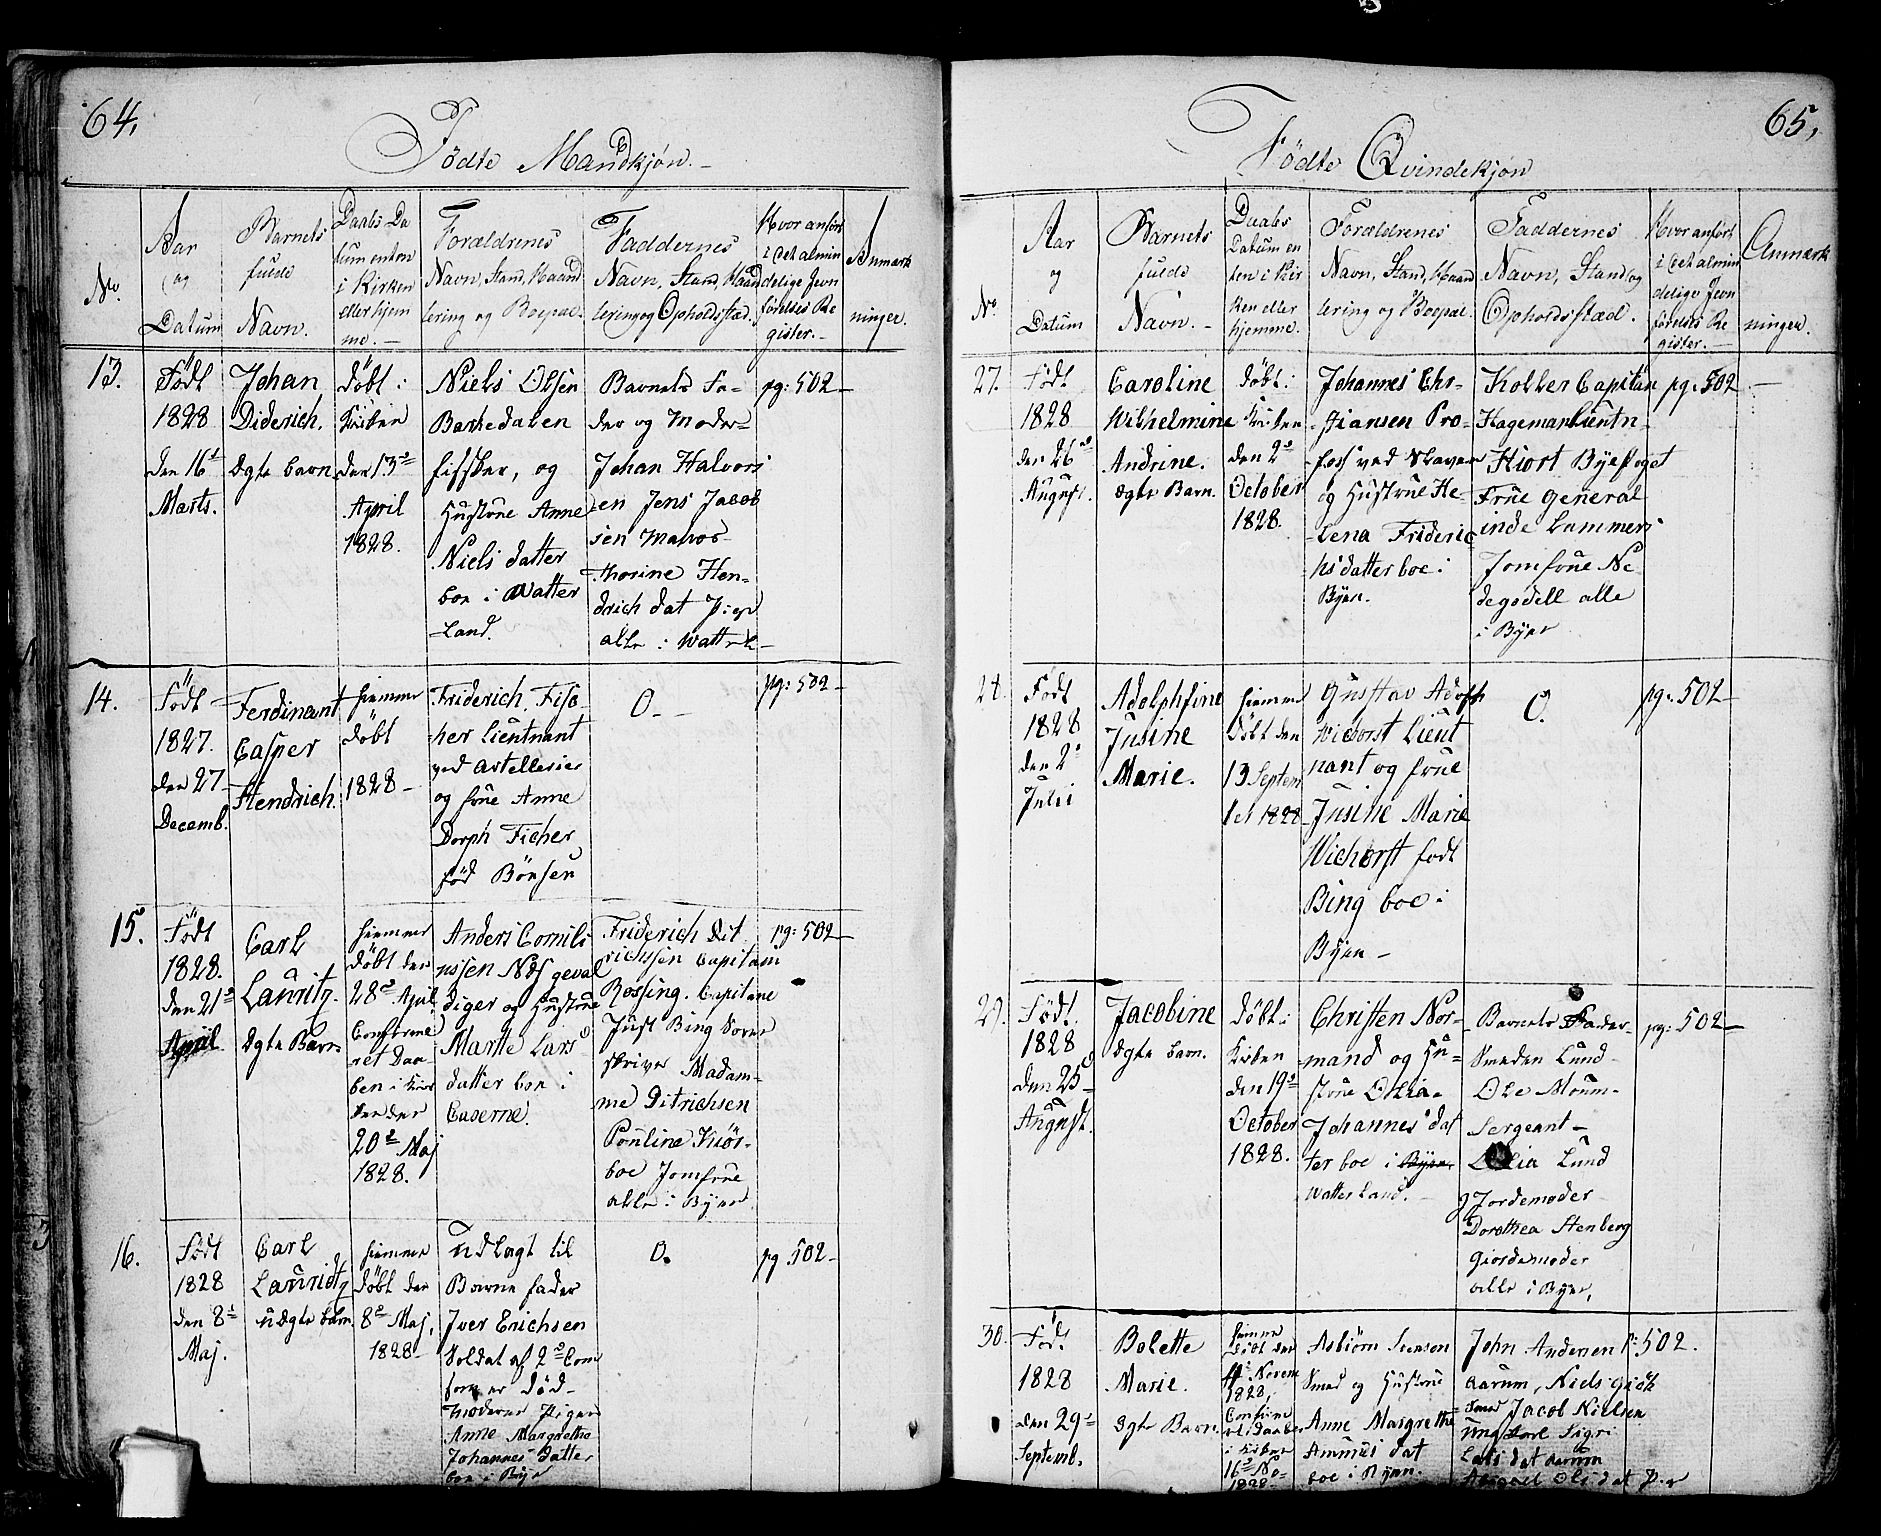 64,
Födte Mandkjøn.-
No.
Aar
og
Datum
Barnets
fulde
Navn.
Daabs Da
tum enten
i Kirken
eller hjem
me.-
Forældrenes
Navn, Stand, Haand
tering og Boepæl.
Faddernes
Navn, Stand, Haand
tering og Opholdsstæd.
Hvor anfört
i det almin
delige Jevn
förelses Re
gister.-
Anmærk
ninger.
13.
Födt
1828
den 16d
Marts.
Johan
Diderich.
Ægte barn
döbt i
Kirken
den 13de
April
1828.
Niels Olsen
Barkedalen
fissker, og
Hustrue Anne
Niels datter
boe i Watter
Land.
Barnets Fa-
der og Moder-
Johan Halvors
en Jens Jacob
sen Matros
Thorine Hen-
drich dat Pige
alle i Watterl-
pg: 502-
14.
Födt
1827.
den 27
Decemb.
Ferdinant
Casper
Hendrich.
hiemme
döbt
1828-
Friderich Fis-
her Lieutnant
ved Artelleriet
og frue Anne
Dorph Ficher
föd Bönsen
0.-
pg: 502-
15.
Födt
1828.
den 21d
April
Carl
Lauritz.
Ægte Barn
hiemme
döbt den
28de April
Confirme
ret Daa
ben i Kir
ken den
20de Maj
1828.
Anders Cornili
ussen geval
diger og Hustrue
Marthe Lars
datter boe i
Caserne.
Friderich Dit
richsen Capitain
Rossing. Capitane
Just Bing Soren
skriver Madam-
me Ditrichsen
Pouline Knör-
boe Jomfrue
alle i Byen
pg: 502-
16.
Födt
1828
den 8d
Maj.
Carl
Lauridtz
uægte barn
hiemme
döbt den
8de Maj,
1828-
Udlagt til
Barne fader
Iver Erichsen
Soldat af 2de Com
Död-
Moderen Pigen
Anne Margrethe
Johannes datter
boe i Byen
0.
pg. 502-
65,
Födte Qvindekjøn
No
Aar
og
Datum
Barnets
fulde
Navn.-
Daabs
Datum en
ten i Kir
ken eller
hjemme.
Forældrenes
Navn, Stand, Haand
tering og Boepæl.
Faddernes
Navn, Stand og
Opholdsstæd.
Hvor anfört
i det almin
delige Jevn
förelses Re
gister.-
Anmærk
ninger.
27.
Födt
1828
den 26de
August.
Caroline
Wilhelmine
Andrine.
Ægte Barn.
döbt i
Kirken
den 2de
October
1828.
Johannes Chr-
stiansen Pro-
foss ved Slaver
og Hustrue He-
lena Frideric
hs datter boe i
Byen.
Kolker Capitän
Hageman Lieutn-
Hiort Byefoget
Frue General
inde Lammers
Jomfrue Ne
degodell alle
i Byen
pg. 502-
28.
Födt
1828
den 2d
Julii
Adolphine
Jusine
Marie.
hiemme
Döbt den
13 Septem
1828
Gusstav Adoph
Wichorst Lieut
nant og frue
Jusine Marie
Wichorst födt
Bing boe i
Byen-
0.
pg. 502-
29.
Födt.
1828
den 25d
August.
Jacobine
Ægte barn.
döbt i
Kirken
den 19de
October
1828.
Christen Nor-
mand og Hu-
strue Olia-
Johannes dat
ter boe i Byen
Watter Land.-
Barnets Fader-
Smeden Lund-
Ole Moum-
Sergeant-
Lund
Jordemoder
Dorothea Stenberg
Giordemoder
alle i Byen,
pg: 502-
30.
Föd.
1828
den 29d
Septemb.
Bolette
Marie.
Ægte Barn.
hiemme
döbt den
Novem
1828,
Confirme
ret Daaben
i Kirken
16de No-
1828-
Asbiörn Svensen
Smed og Hustrue
Anne Margrethe
Asmus dat
boe i Byen.
John Andersen
Aarum, Niels Giöt
Smed Jacob Nielsen
ung karl Sigri
Lars dat Aarum
Ols dat Pige
p: 502.